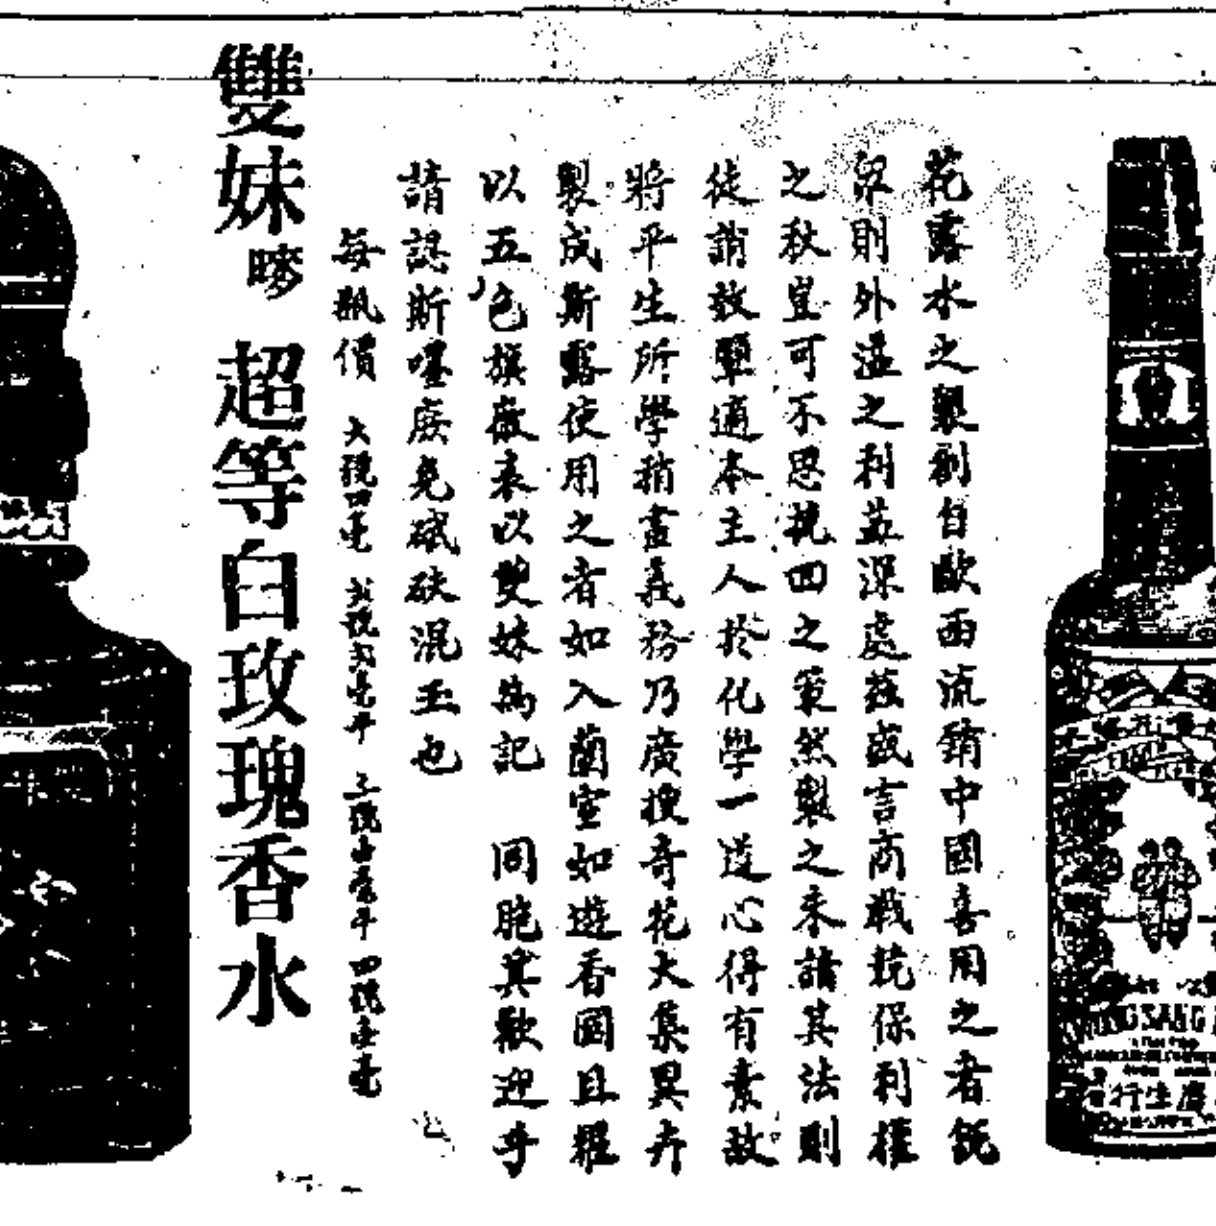 花露水之製創自歐西流銷中國喜用之者旣
眾則外溢之利益深處茲盛言商戰競保利權
之秋豈可不思挽回之策然製之未諳其法則
徒誚效顰適本主人於化學一道心得有素故
將平生所學稍盡義務乃廣搜奇花大集異卉
製成斯露使用之者如入蘭室如遊香國且雜
以五色旗徽表以雙妹為記 同胞其歡迎乎
請認斯嘜庶免碔砆混玉也
每瓶價 大號四毫 貳號貳毫半 三號 毫半 四號壹毫
雙妹嘜 超等白玫瑰香水
SANG
行生廣